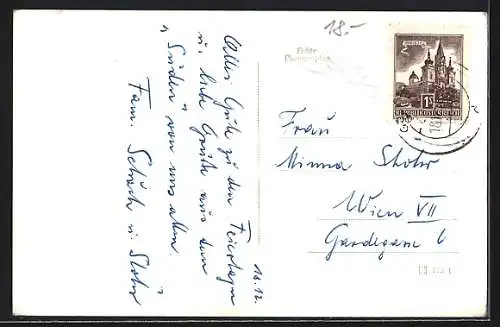 18.-
Echte
Photographie
Alles Gute zu den Feiertagen
u. liebe Grüße aus dem
Süden von uns allen.
Fam. Schach u. Stohr
18.12.
REPUBLIK ÖSTERREICH
Frau
Minna Stohr
Wien VII
Gardegasse 6